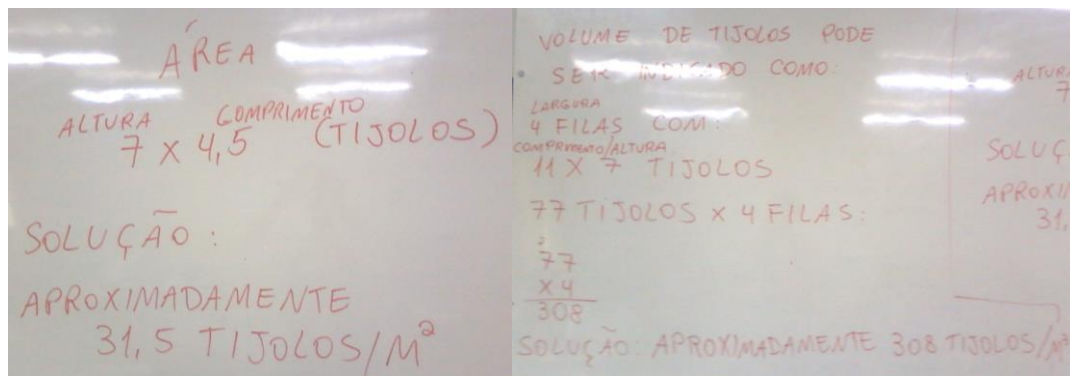 ÁREA
ALTURA COMPRIMENTO
7 X 4,5 (TIJOLOS)
SOLUÇÃO:
APROXIMADAMENTE
31,5 TIJOLOS/M²
VOLUME DE TIJOLOS PODE
SER INDICADO COMO:
LARGURA
4 FILAS COM:
COMPRIMENTO/ALTURA
11 X 7 TIJOLOS
77 TIJOLOS X 4 FILAS:
2
77
X4
308
SOLUÇÃO: APROXIMADAMENTE 308 TIJOLOS/M³
ALTURA
7
SOLUÇ
APROXI
31,